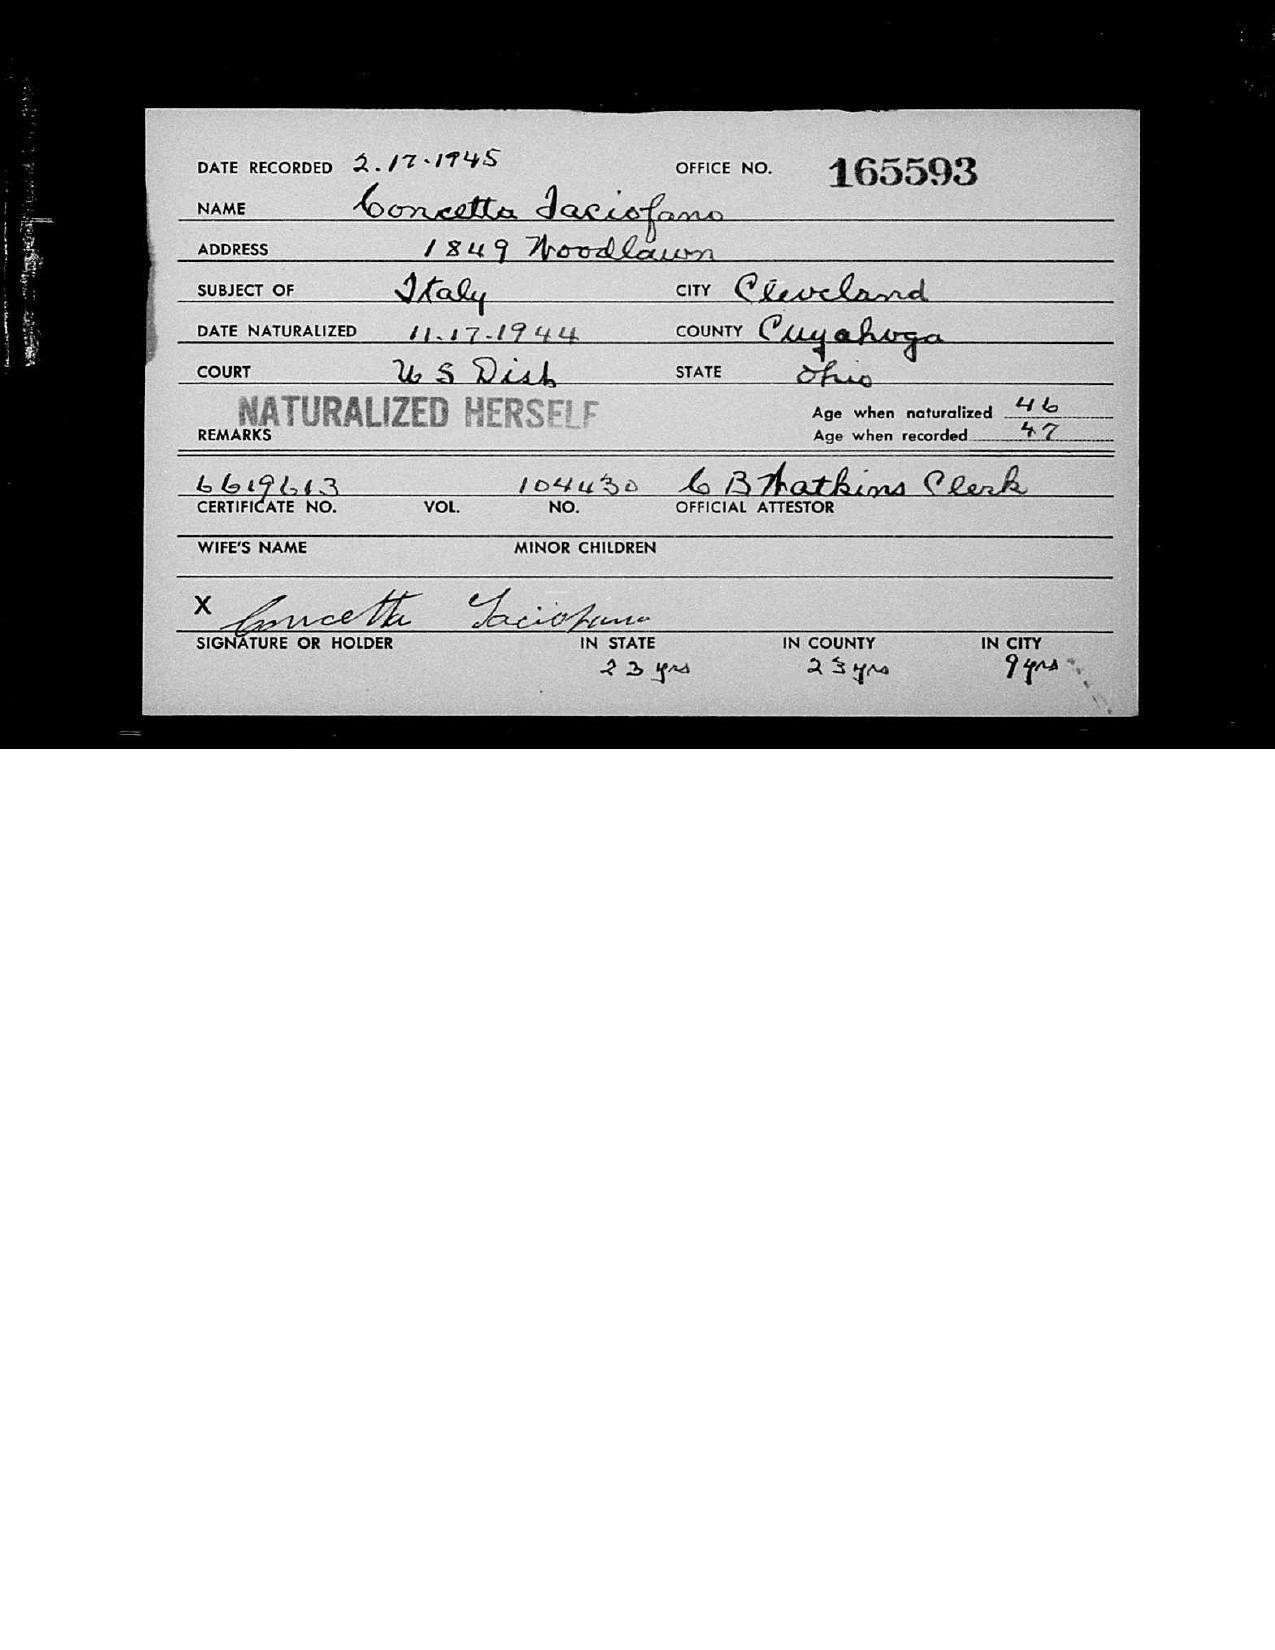 DATE RECORDED 2.17.1945 OFFICE NO. 165593
NAME Concetta Iaciofano
ADDRESS 1849 Woodlawn
SUBJECT OF Italy CITY Cleveland
DATE NATURALIZED 11.17.1944 COUNTY Cuyahoga
COURT U S Dist STATE Ohio
NATURALIZED HERSELF Age when naturalized 46
REMARKS Age when recorded 47
6619613 104430 C B Watkins Clerk
CERTIFICATE NO. VOL. NO. OFFICIAL ATTESTOR
WIFE'S NAME MINOR CHILDREN
X Concetta Iaciofano
SIGNATURE OR HOLDER IN STATE IN COUNTY IN CITY
23 yrs 23 yrs 9 yrs